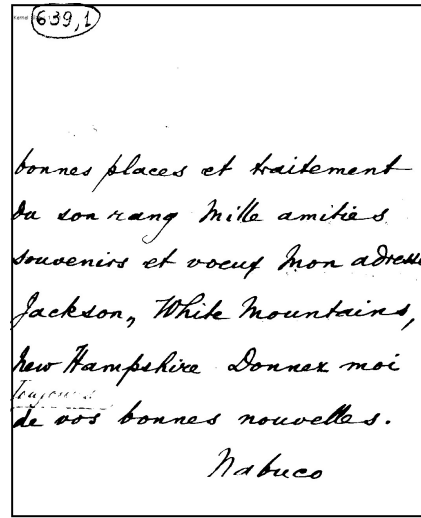 639,1
bonnes places et traitement
du son rang Mille amitiés
souvenirs et voeux Mon adresse
Jackson, White Mountains,
New Hampshire Donnez moi
Toujours
de vos bonnes nouvelles.
Nabuco